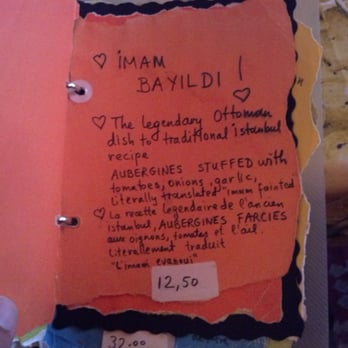 İMAM
BAYILDI !
The legendary Ottoman
dish to traditional istanbul
recipe
AUBERGINES STUFFED with
tomatoes, onions, garlic,
Literally translated "imam fainted
La recette legendaire de l'ancien
istanbul, AUBERGINES FARCIES
aux oignons, tomates et l'ail.
Literallement traduit
"L'imam evanoui"
12,50
32.00